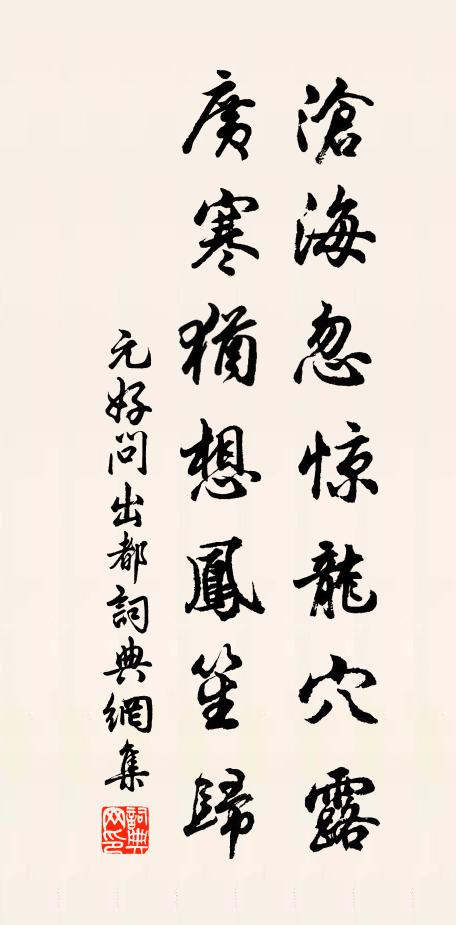 滄海忽惊龍穴露
廣寒猶想鳳笙歸
元好问出都詞典網集
詞典网印